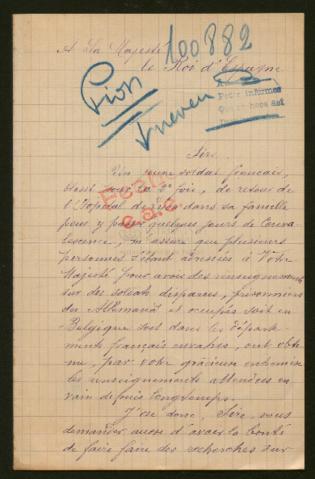 A Sa Majesté
le Roi d'Espagne
100.882
Pion
Sire
Un jeune soldat français,
blessé pour la 2e fois, de retour de
l'hôpital dans sa famille
pour y passer quelques jours de Conva-
lescence, m'assure que plusieurs
personnes s'étant adressées à Votre
Majesté pour avoir des renseignements
sur des soldats disparus, prisonniers
en Allemagne et occupés soit en
Belgique soit dans les départe-
ments français envahis, ont obte-
nu, par votre gracieuse entremise
les renseignements attendus en
vain depuis longtemps.
J'ose donc, Sire, vous
demander aussi d'avoir la bonté
de faire faire des recherches sur